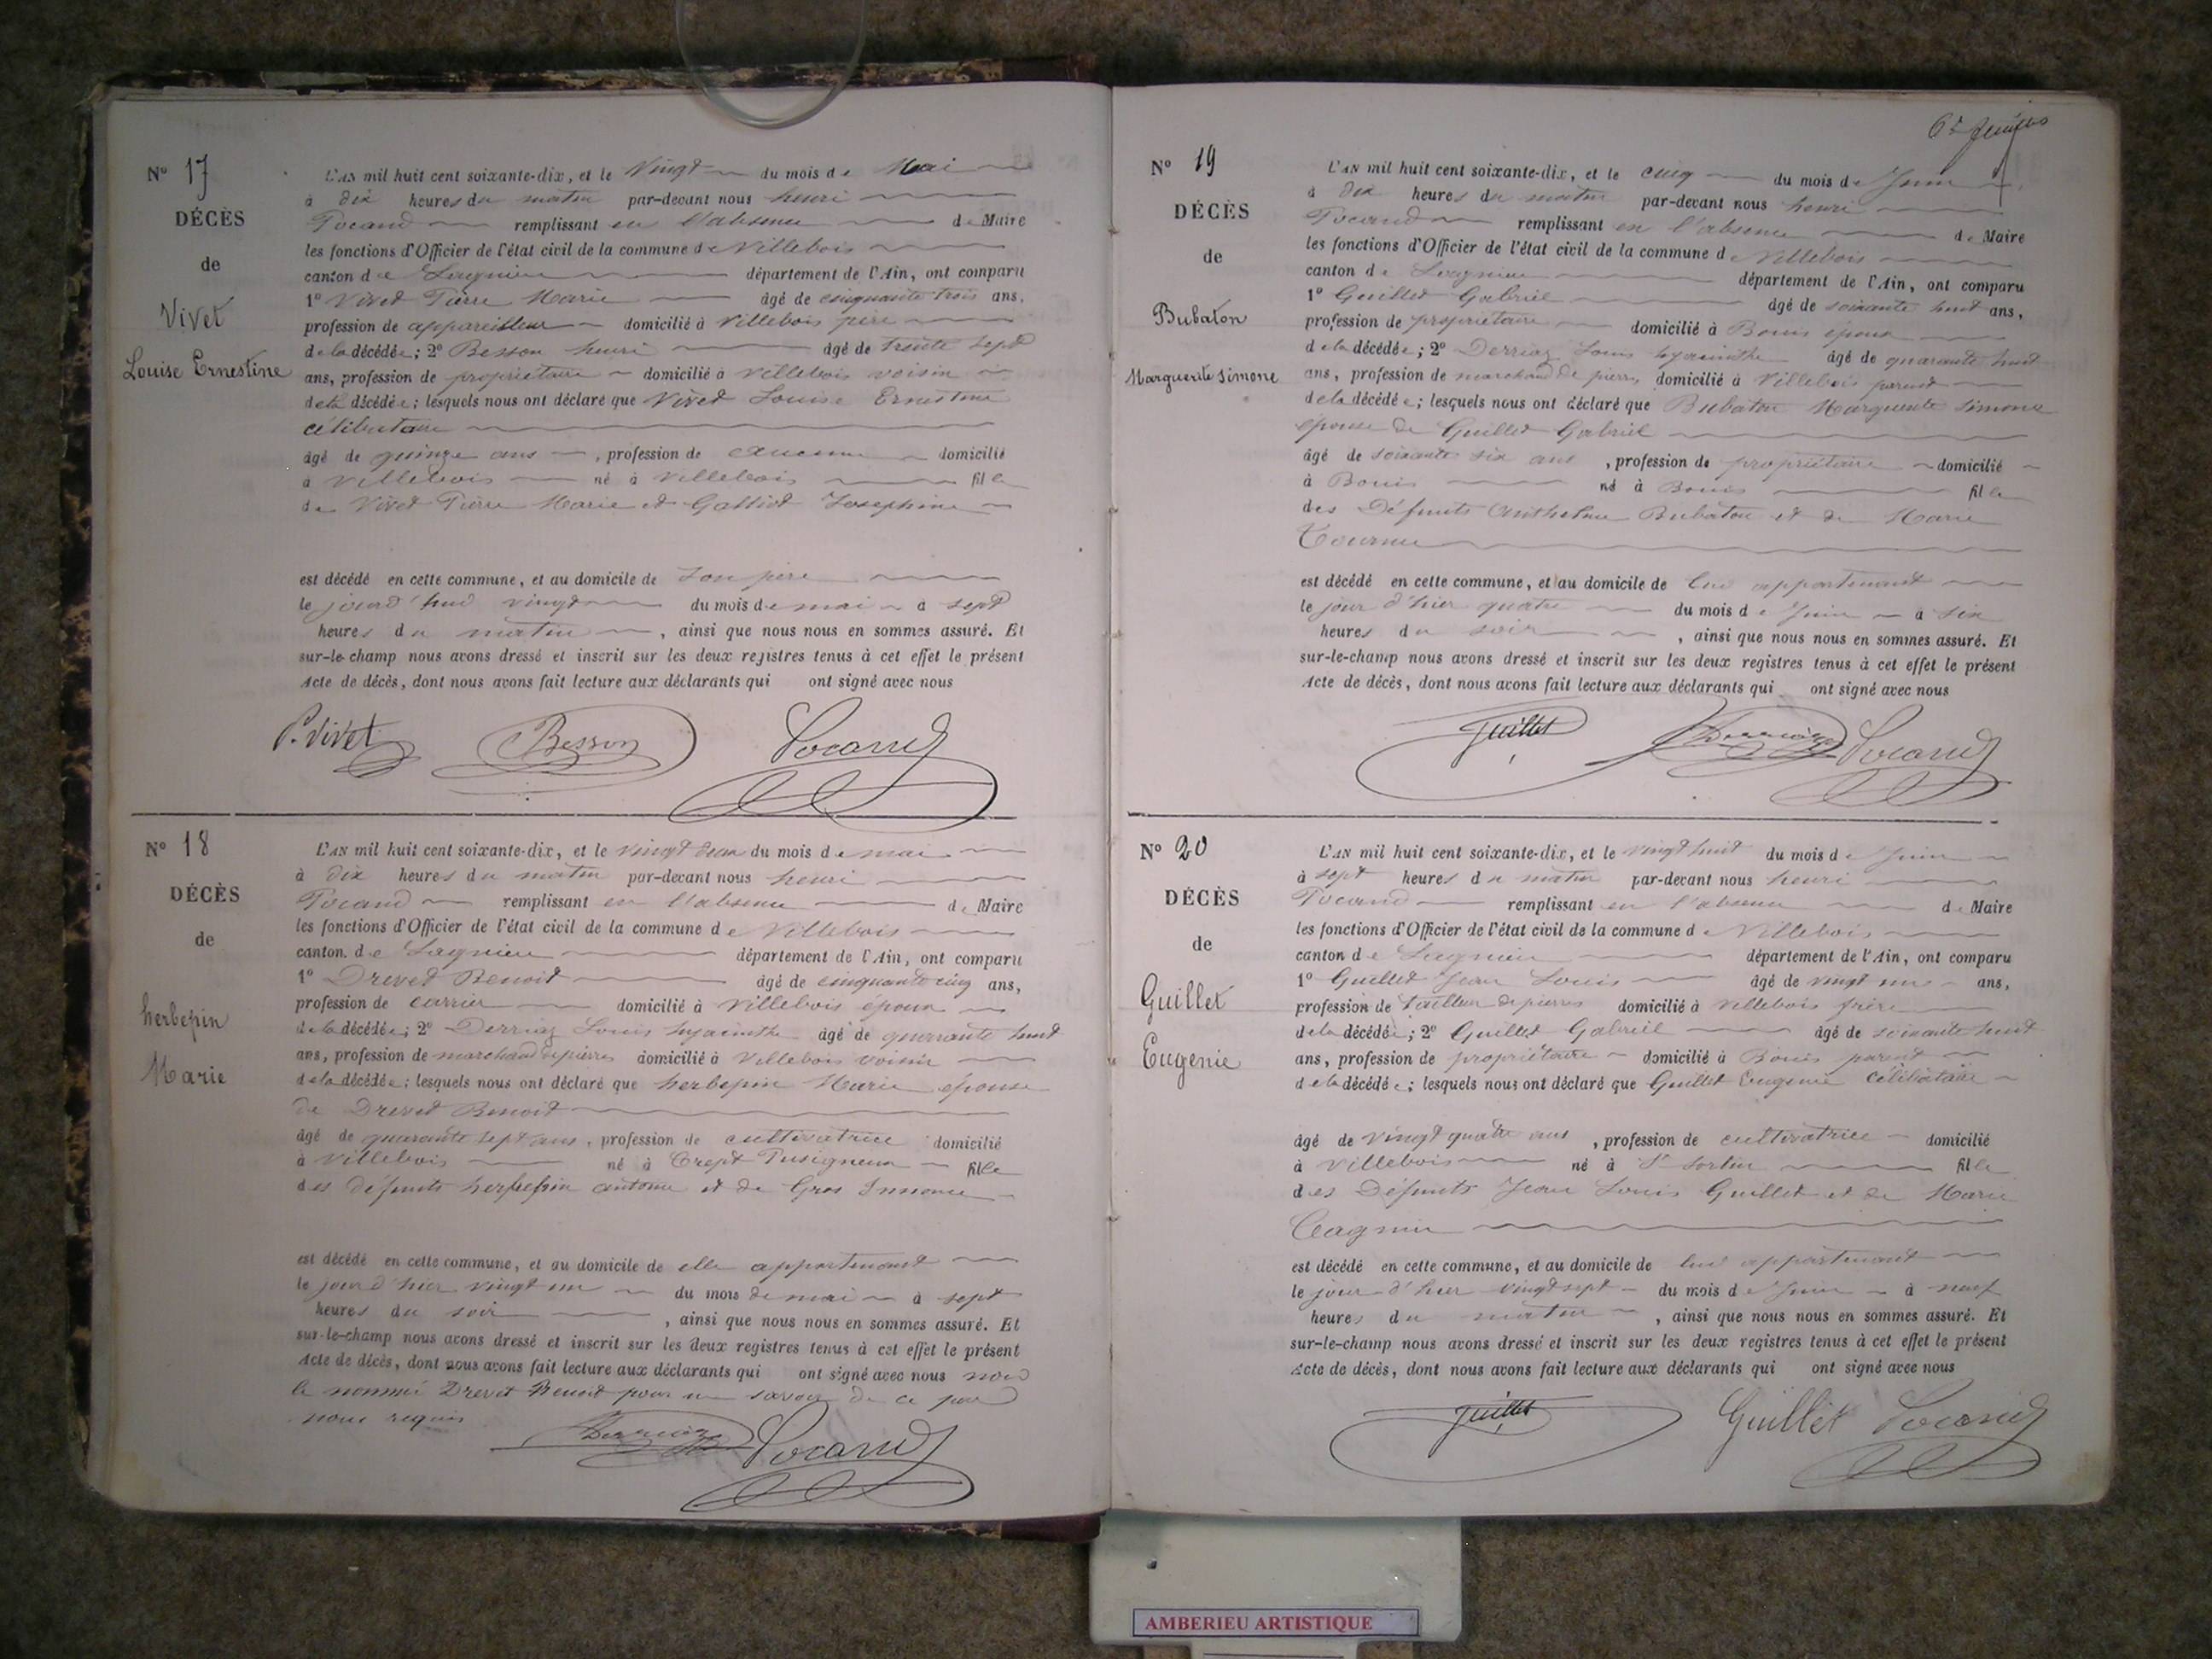 N° 17
DÉCÈS
de
Vivet
Louise Ernestine
L'AN mil huit cent soixante-dix, et le Vingt du mois de Mai
à dix heures du matin par-devant nous henri
Pocand remplissant en l'absence de Maire
les fonctions d'Officier de l'état civil de la commune de Villebois
canton de Lagnieu département de l'Ain, ont comparu
1° Vivet Pierre Marie âgé de cinquante trois ans,
profession de appareilleur domicilié à Villebois père
de la décédée; 2° Besson henri âgé de trente sept
ans, profession de propriétaire domicilié à Villebois voisin
de la décédée; lesquels nous ont déclaré que Vivet Louise Ernestine
célibataire
âgé de quinze ans, profession de aucune domicilié
à Villebois né à Villebois fille
de Vivet Pierre Marie et Galliot Josephine
est décédé en cette commune, et au domicile de son père
le jourd'hui vingt du mois de mai à sept
heures du matin, ainsi que nous nous en sommes assuré. Et
sur-le-champ nous avons dressé et inscrit sur les deux registres tenus à cet effet le présent
Acte de décès, dont nous avons fait lecture aux déclarants qui ont signé avec nous
P. Vivet Besson Pocand
N° 18
DÉCÈS
de
herbepin
Marie
L'AN mil huit cent soixante-dix, et le vingt deux du mois de mai
à dix heures du matin par-devant nous henri
Pocand remplissant en l'absence de Maire
les fonctions d'Officier de l'état civil de la commune de Villebois
canton de Lagnieu département de l'Ain, ont comparu
1° Drevet Benoit âgé de cinquante cinq ans,
profession de carrier domicilié à Villebois époux
de la décédée; 2° Derriaz Louis hyacinthe âgé de quarante huit
ans, profession de marchand de pierres domicilié à Villebois voisin
de la décédée; lesquels nous ont déclaré que herbepin Marie épouse
de Drevet Benoit
âgé de quarante sept ans, profession de cultivatrice domicilié
à Villebois né à Crept Pusigneux fille
des défunts herbepin antoine et de Gros
est décédé en cette commune, et au domicile de elle appartenant
le jour d'hier vingt un du mois de mai à sept
heures du soir, ainsi que nous nous en sommes assuré. Et
sur-le-champ nous avons dressé et inscrit sur les deux registres tenus à cet effet le présent
Acte de décès, dont nous avons fait lecture aux déclarants qui ont signé avec nous non
le nommé Drevet Benoit pour ne savoir de ce par
nous requis
Derriaz Pocand
6e feuillet
N° 19
DÉCÈS
de
Bubaton
Marguerite Simone
L'AN mil huit cent soixante-dix, et le cinq du mois de Juin
à dix heures du matin par-devant nous henri
Pocand remplissant en l'absence de Maire
les fonctions d'Officier de l'état civil de la commune de Villebois
canton de Lagnieu département de l'Ain, ont comparu
1° Guillet Gabriel âgé de soixante huit ans,
profession de propriétaire domicilié à Bouis époux
de la décédée; 2° Derriaz Louis hyacinthe âgé de quarante huit
ans, profession de marchand de pierres domicilié à Villebois parent
de la décédée; lesquels nous ont déclaré que Bubaton Marguerite Simone
épouse de Guillet Gabriel
âgé de soixante six ans, profession de propriétaire domicilié
à Bouis né à Bouis fille
des Défunts Anthelme Bubaton et de Marie
Tournu
est décédé en cette commune, et au domicile de lui appartenant
le jour d'hier quatre du mois de Juin à six
heures du soir, ainsi que nous nous en sommes assuré. Et
sur-le-champ nous avons dressé et inscrit sur les deux registres tenus à cet effet le présent
Acte de décès, dont nous avons fait lecture aux déclarants qui ont signé avec nous
Guillet Derriaz Pocand
N° 20
DÉCÈS
de
Guillet
Eugenie
L'AN mil huit cent soixante-dix, et le vingt huit du mois de Juin
à sept heures du matin par-devant nous henri
Pocand remplissant en l'absence de Maire
les fonctions d'Officier de l'état civil de la commune de Villebois
canton de Lagnieu département de l'Ain, ont comparu
1° Guillet Jean Louis âgé de vingt un ans,
profession de tailleur de pierres domicilié à Villebois frère
de la décédée; 2° Guillet Gabriel âgé de soixante huit
ans, profession de propriétaire domicilié à Bouis parent
de la décédée; lesquels nous ont déclaré que Guillet Eugenie célibataire
âgé de vingt quatre ans, profession de cultivatrice domicilié
à Villebois né à St Sorlin fille
des Défunts Jean Louis Guillet et de Marie
Cagnin
est décédé en cette commune, et au domicile de lui appartenant
le jour d'hier vingt sept du mois de Juin à neuf
heures du matin, ainsi que nous nous en sommes assuré. Et
sur-le-champ nous avons dressé et inscrit sur les deux registres tenus à cet effet le présent
Acte de décès, dont nous avons fait lecture aux déclarants qui ont signé avec nous
Guillet Guillet Pocand
AMBERIEU ARTISTIQUE